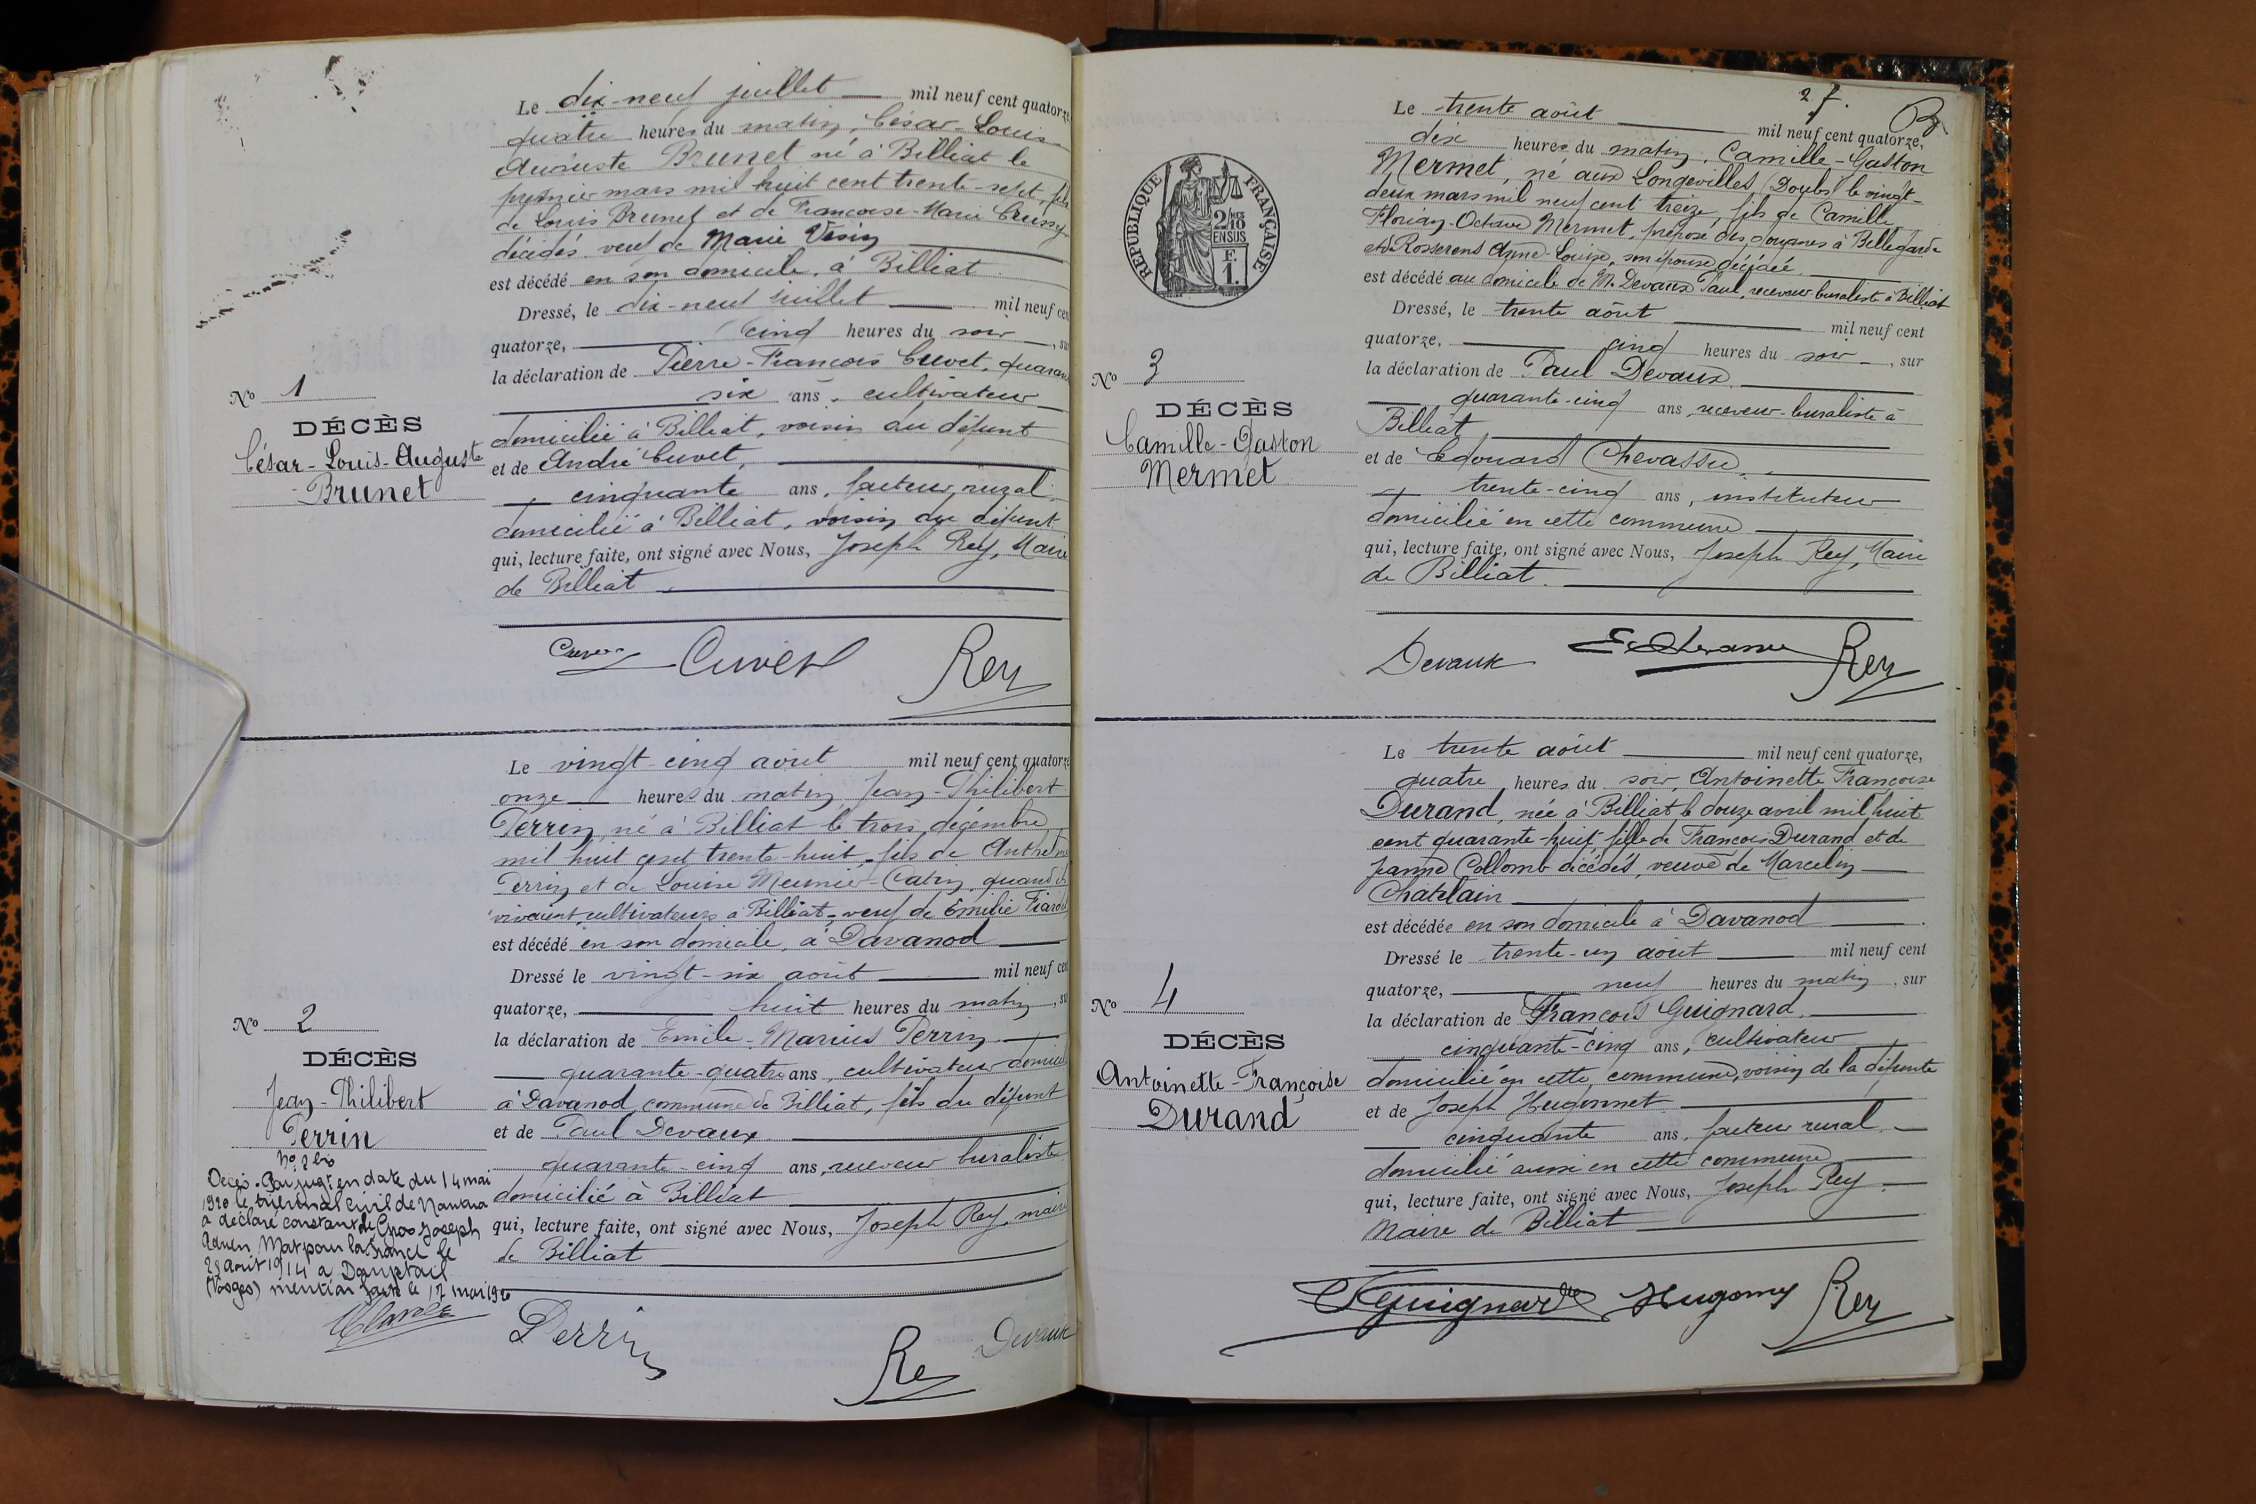 Le dix-neuf juillet mil neuf cent quatorze
quatre heures du matin, César-Louis
Auguste Brunet né à Billiat le
premier mars mil huit cent trente-sept, fils
de Louis Brunet et de Françoise-Marie
décédés veuf de Marie
est décédé en son domicile, à Billiat
Dressé, le dix-neuf juillet mil neuf cent
quatorze, cinq heures du soir, sur
la déclaration de Pierre-François Cuvet, quarante
six ans, cultivateur
domicilié à Billiat, voisin du défunt
et de André Cuvet,
cinquante ans, facteur rural,
domicilié à Billiat, voisin du défunt
qui, lecture faite, ont signé avec Nous, Joseph Rey, Maire
de Billiat
Nº 1
DÉCÈS
César-Louis-Auguste
Brunet
Cuvet Rey
Le vingt-cinq août mil neuf cent quatorze
onze heures du matin Jean-Philibert
Perrin, né à Billiat le trois décembre
mil huit cent trente-huit, fils de
Perrin et de Louise Meunier-Catin, quand ils
vivaient cultivateurs à Billiat, veuf de Emilie
est décédé en son domicile, à Davanod
Dressé le vingt-six août mil neuf cent
quatorze, huit heures du matin, sur
la déclaration de Emile-Marius Perrin
quarante-quatre ans, cultivateur domicilié
à Davanod commune de Billiat, fils du défunt
et de Paul Devaux
quarante-cinq ans, receveur buraliste
domicilié à Billiat
qui, lecture faite, ont signé avec Nous, Joseph Rey, maire
de Billiat
Nº 2
DÉCÈS
Jean-Philibert
Perrin
Nº 2 bis
Décès. Par jugt en date du 14 mai
1920 le tribunal civil de Nantua
a déclaré constant de Gros Joseph
Mort pour la France le
août 1914 à
(Vosges) mention faite le 17 mai 1920
Perrin Rey Devaux
27.
Le trente août mil neuf cent quatorze,
dix heures du matin, Camille-Gaston
Mermet, né aux Longevilles (Doubs) le vingt-
deux mars mil neuf cent treize, fils de Camille
Florian-Octave Mermet, préposé des douanes à Bellegarde
et de Rosserens Anne-Louise, son épouse décédée
est décédé au domicile de M. Devaux Paul, receveur buraliste à Billiat
Dressé, le trente août mil neuf cent
quatorze, cinq heures du soir, sur
la déclaration de Paul Devaux
quarante-cinq ans, receveur-buraliste à
Billiat
et de Edouard Chevassu
trente-cinq ans, instituteur
domicilié en cette commune
qui, lecture faite, ont signé avec Nous, Joseph Rey, Maire
de Billiat.
RÉPUBLIQUE FRANÇAISE
2/10
EN SUS
F.
1.
Nº 3
DÉCÈS
Camille-Gaston
Mermet
Devaux Rey
Le trente août mil neuf cent quatorze,
quatre heures du soir, Antoinette Françoise
Durand, née à Billiat le douze avril mil huit
cent quarante-huit, fille de François Durand et de
Jeanne Collomb décédés, veuve de Marcelin
Chatelain
est décédée en son domicile à Davanod
Dressé le trente-un août mil neuf cent
quatorze, neuf heures du matin, sur
la déclaration de François Guignard,
cinquante-cinq ans, cultivateur
domicilié en cette commune, voisin de la défunte
et de Joseph Hugonnet
cinquante ans, facteur rural,
domicilié aussi en cette commune
qui, lecture faite, ont signé avec Nous, Joseph Rey
Maire de Billiat
Nº 4
DÉCÈS
Antoinette-Françoise
Durand
Rey